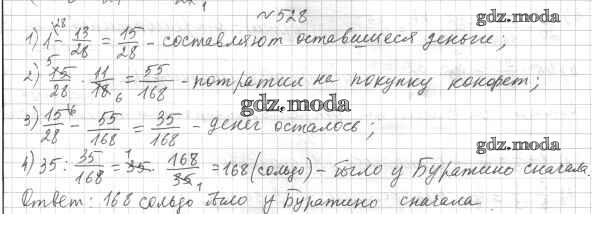 №528
gdz.moda
1) 1^28 - 13/28 = 15/28 - составляют оставшиеся деньги;
2) 15^5/28 · 11/18_6 = 55/168 - потратил на покупку конфет;
gdz.moda
3) 15^6/28 - 55/168 = 35/168 - денег осталось;
gdz.moda
4) 35 : 35/168 = 35^1 · 168/35_1 = 168 (сольдо) - было у Буратино сначала.
Ответ: 168 сольдо было у Буратино сначала.